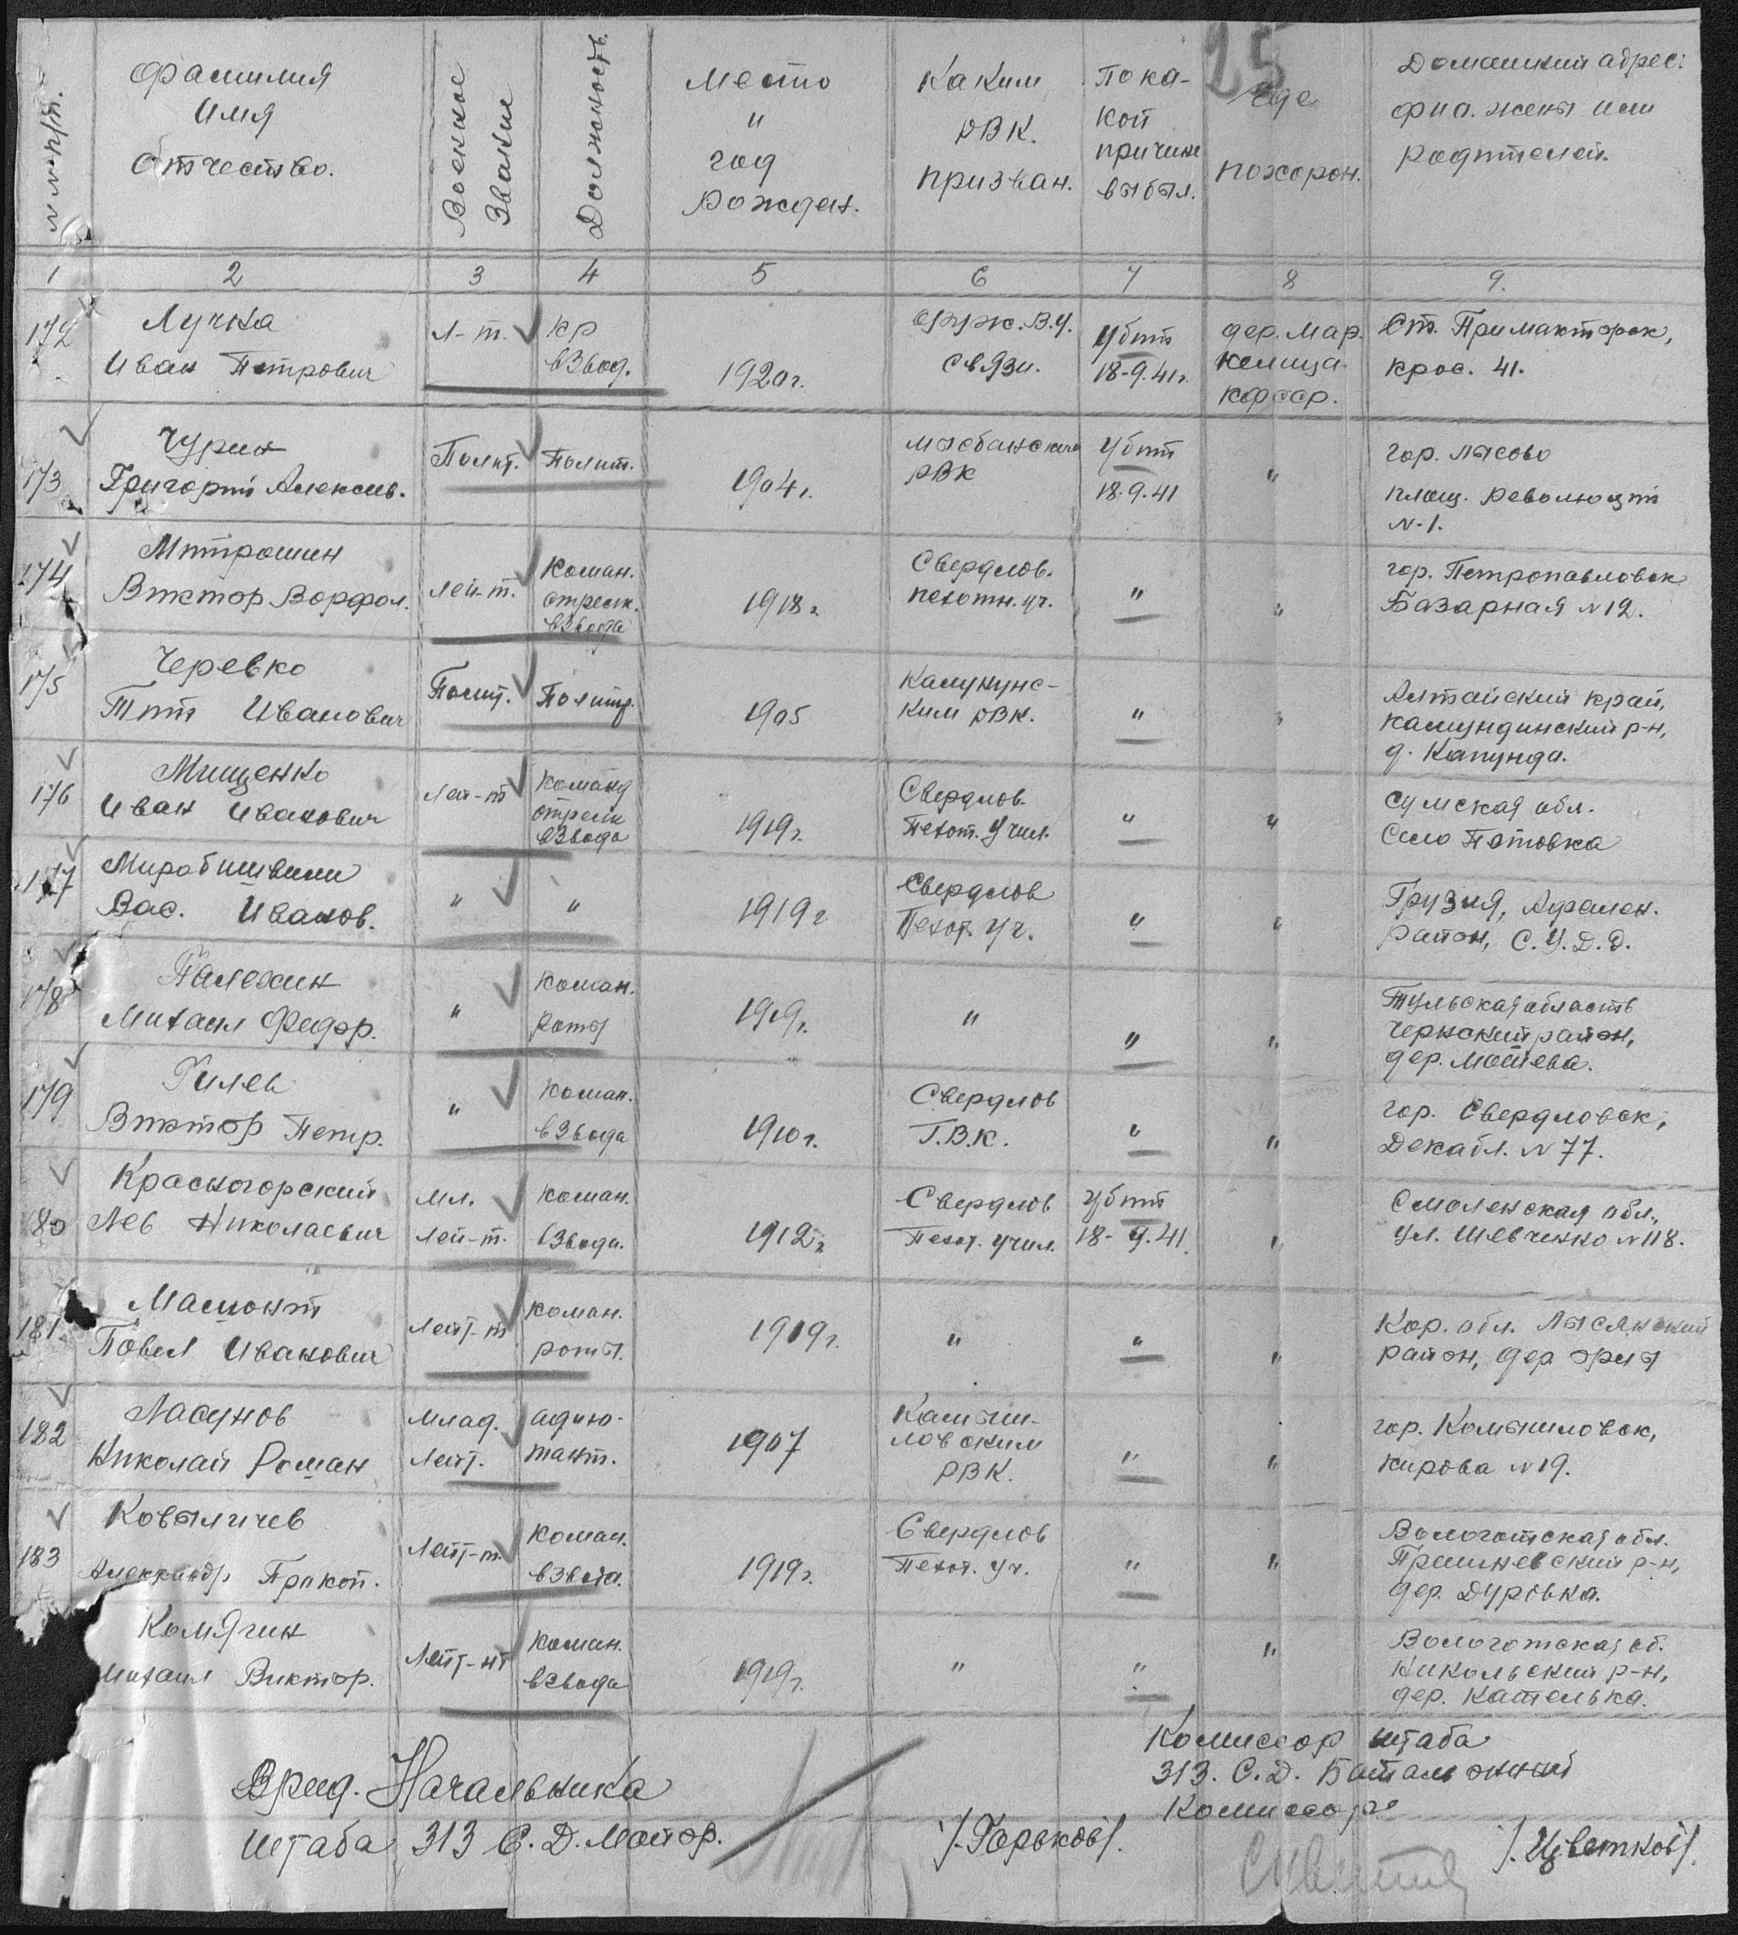 25
N N п/п.
Фамилия
Имя
Отчество.
Военное
Звание
Должность
Место
и
год
рожден.
Каким
РВК.
призван.
По ка-
кой
причине
выбыл.
где
похорон.
Домашний адрес:
фиа. жены или
родителей.
1 2 3 4 5 6 7 8 9.
172
Лучка
Иван Петрович
Л-т.
кр
взвод.
1920 г.
В.У.
связи.
Убит
18-9.41 г.
дер. Мар.
кфсср.
Ст.
крас. 41.
173
Чурин
Григорий Алексев.
Полит.
Полит.
1904 г.
РВК
Убит
18.9.41
"
гор. Лысово
площ. революции
N-1.
174
Митрошин
Виктор Ворфол.
Лей-т.
Коман.
стрелк.
взвода
1918 г.
Свердлов.
пехотн. уч.
"
"
гор. Петропавловск
Базарная N 12.
175
Черевко
Тит Иванович
Полит.
Политр.
1905
ким РВК.
"
"
Алтайский край,
р-н,
д.
176
Мищенко
Иван Иванович
Лей-т
Команд
стрелк
взвода
1919 г.
Свердлов.
Пехот. Учил.
"
"
Сумская обл.
Село Потовка
177
Мирабишвили
Вас. Иванов.
"
"
1919 г
Свердлов
Пехот. Уч.
"
"
Грузия,
район, С.У.Д.Д.
178
Палехин
Михаил Федор.
"
коман.
роты
1919 г.
"
"
"
Тульская область
Чернский район,
дер.
179
Гилев
Виктор Петр.
"
коман.
взвода
1910 г.
Свердлов
Г.В.К.
"
"
гор. Свердловск,
Декабл. N 77.
180
Красногорский
Лев Николаевич
Мл.
Лей-т.
коман.
взвода.
1912 г.
Свердлов
Пехот. Учил.
Убит
18-9.41.
"
Смоленская обл.,
ул. Шевченко N 118.
181.
Мамонт
Повел Иванович
Лейт-т
коман.
роты.
1919 г.
"
"
"
Кар. обл. Лысянский
район, дер
182
Ласунов
Николай Роман
Млад.
Лейт.
адъю-
тант.
1907
Камыш-
ловским
РВК.
"
"
гор. Комышловск,
Кирова N 19.
183
Ковыличев
Александр Прокоп.
Лейт-т.
коман.
взвода.
1919 г.
Свердлов
Пехот. Уч.
"
"
Вологотская обл.
р-н,
дер. Дуровка.
Комягин
Михаил Виктор.
Лейт-нт
коман.
взвода
1919 г.
"
"
"
Вологотская об.
Никольский р-н,
дер. Кателька.
Врид. Начальника
Штаба 313 С.Д. Майор.
/. Горьков/.
Комиссар штаба
313. С.Д. Батальонный
Комиссар
/. Цветков/.